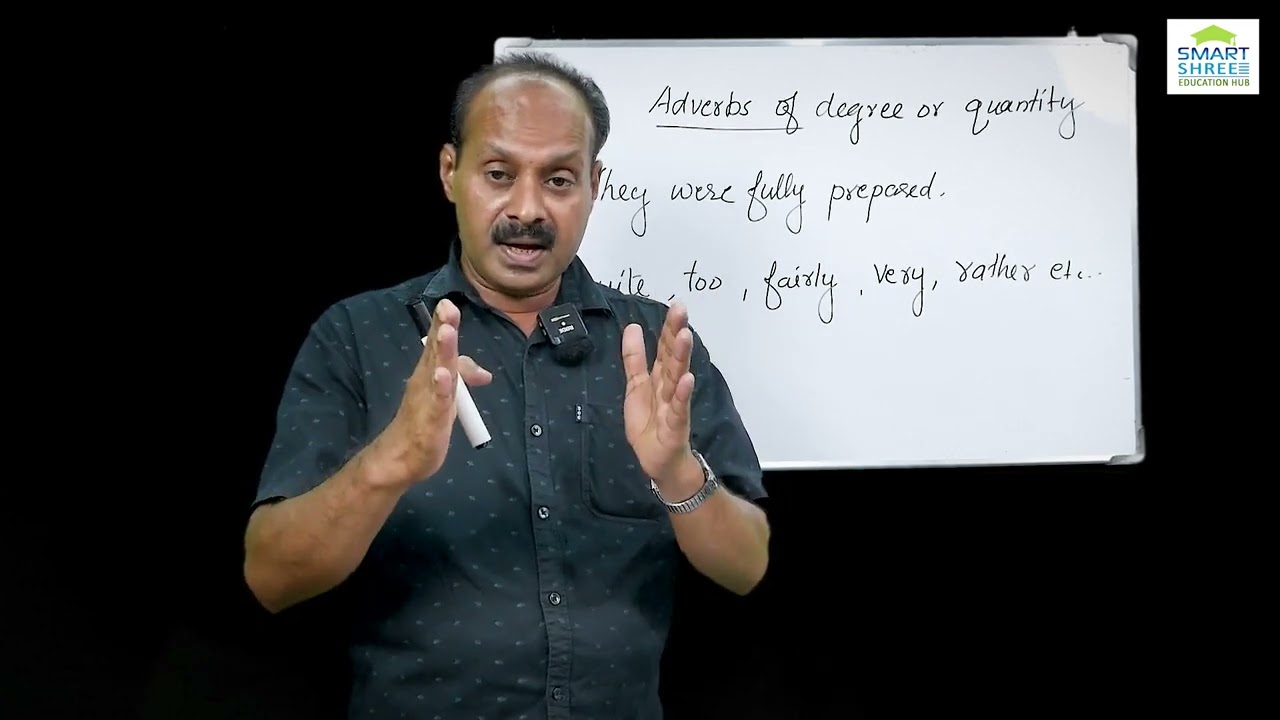 SMART
SHREE
EDUCATION HUB
Adverbs of degree or quantity
They were fully prepared.
quite, too, fairly, very, rather etc...